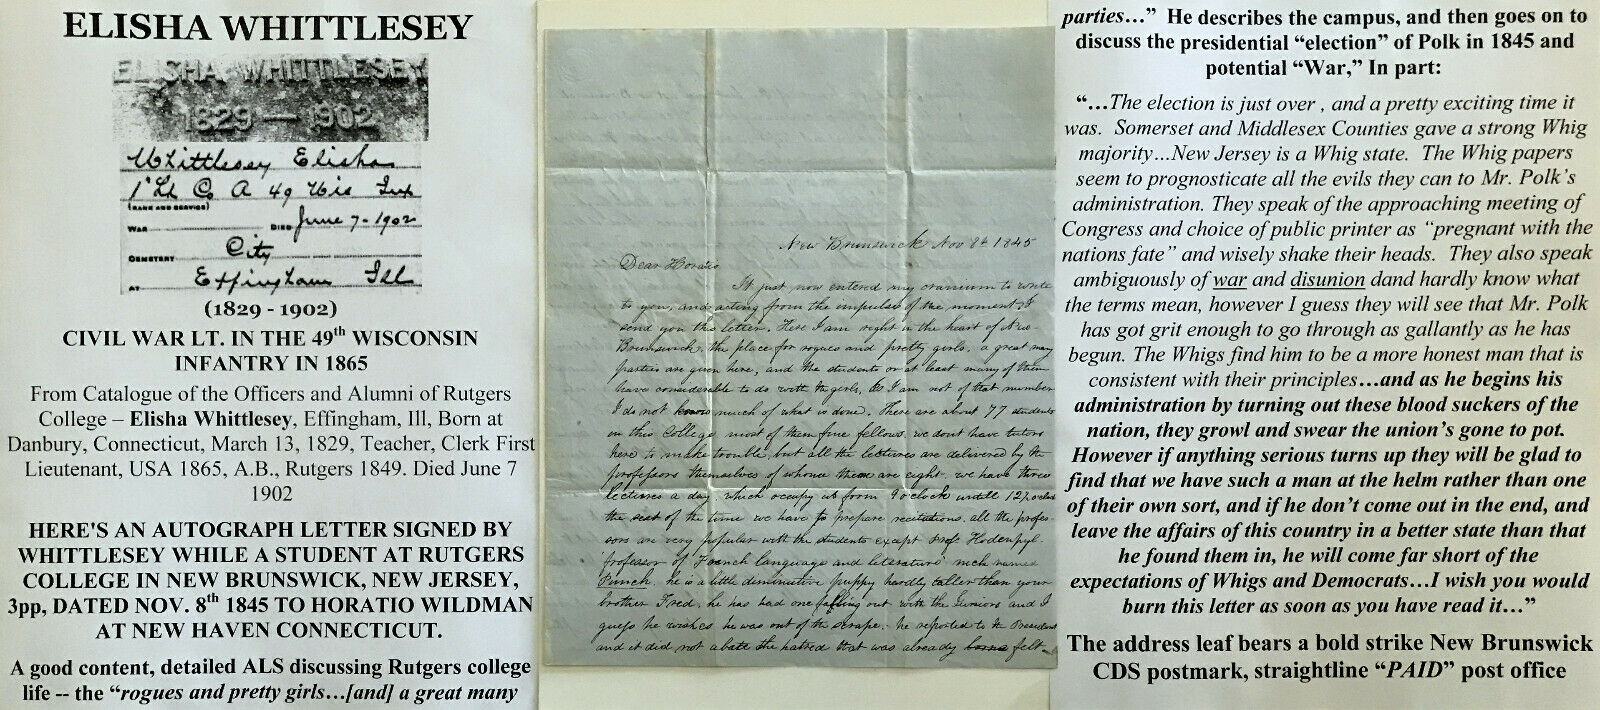 ELISHA WHITTLESEY
ELISHA WHITTLESEY
1829 — 1902
Whittlesey Elisha
1' Lt Co A 49 Wis Inf
(RANK AND SERVICE)
WAR DIED June 7-1902
CEMETERY City
AT Effingham Ill
(1829 - 1902)
CIVIL WAR LT. IN THE 49th WISCONSIN
INFANTRY IN 1865
From Catalogue of the Officers and Alumni of Rutgers
College – Elisha Whittlesey, Effingham, Ill, Born at
Danbury, Connecticut, March 13, 1829, Teacher, Clerk First
Lieutenant, USA 1865, A.B., Rutgers 1849. Died June 7
1902
HERE'S AN AUTOGRAPH LETTER SIGNED BY
WHITTLESEY WHILE A STUDENT AT RUTGERS
COLLEGE IN NEW BRUNSWICK, NEW JERSEY,
3pp, DATED NOV. 8th 1845 TO HORATIO WILDMAN
AT NEW HAVEN CONNECTICUT.
A good content, detailed ALS discussing Rutgers college
life -- the “rogues and pretty girls…[and] a great many
New Brunswick Nov 8th 1845
Dear Horatio
It just now entered my cranium to write
to you, and acting from the impulse of the moment I
send you this letter. Here I am right in the heart of New
Brunswick, the place for rogues and pretty girls, a great many
parties are given here, and the students or at least many of them
have considerable to do with the girls, as I am not of that number
I do not know much of what is done. There are about 77 students
in this College most of them fine fellows. we dont have tutors
here to make trouble, but all the lectures are delivered by the
professors themselves of whome there are eight. we have three
lectures a day. which occupy us from 9 oclock untill 12½ oclock
the rest of the time we have to prepare recitations. all the profes-
sors are very popular with the students except Prof. Hodenpyl.
professor of French language and literature nick named
Punch, he is a little diminutive puppy hardly taller than your
brother Fred, he has had one falling out with the Juniors and I
guess he wishes he was out of the scrape. he reported to the President
and it did not abate the hatred that was already borne felt
parties…” He describes the campus, and then goes on to
discuss the presidential “election” of Polk in 1845 and
potential “War,” In part:
“…The election is just over , and a pretty exciting time it
was. Somerset and Middlesex Counties gave a strong Whig
majority…New Jersey is a Whig state. The Whig papers
seem to prognosticate all the evils they can to Mr. Polk’s
administration. They speak of the approaching meeting of
Congress and choice of public printer as “pregnant with the
nations fate” and wisely shake their heads. They also speak
ambiguously of war and disunion dand hardly know what
the terms mean, however I guess they will see that Mr. Polk
has got grit enough to go through as gallantly as he has
begun. The Whigs find him to be a more honest man that is
consistent with their principles…and as he begins his
administration by turning out these blood suckers of the
nation, they growl and swear the union’s gone to pot.
However if anything serious turns up they will be glad to
find that we have such a man at the helm rather than one
of their own sort, and if he don’t come out in the end, and
leave the affairs of this country in a better state than that
he found them in, he will come far short of the
expectations of Whigs and Democrats…I wish you would
burn this letter as soon as you have read it…”
The address leaf bears a bold strike New Brunswick
CDS postmark, straightline “PAID” post office